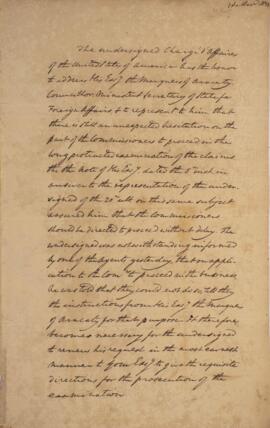 The undersigned Chargé d'Affaires
of the United States of America has the honor
to address His Exy. the Marquess of Aracaty
Councillor Minister Secretary of State for
Foreign Affairs, & to represent to him that
there is still an unexpected hesitation on the
part of the Commissioners to proceed in the
long protracted examination of the claims
tho' the Note of His Exy. dated the inst. in
answer to the representation of the under-
signed of the 20th ulto. on the same subject
assured him that the Commissioners
should be directed to proceed without delay. The
undersigned was notwithstanding informed
by one of the Agents yesterday, that on appli-
cation to the Comrs. to proceed in the business
he was told that they could not do so till they
the instructions from His Exy. the Marquess
of Aracaty for that purpose. It therefore
becomes necessary for the undersigned
to renew his request in the most earnest
manner to your Exy. to give the requisite
directions for the prosecution of the
examination